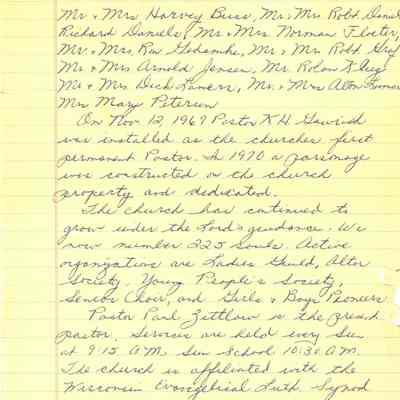 Mr & Mrs Harvey Buss, Mr & Mrs Robt Daniels
Richard Daniels, Mr & Mrs Norman Floeter,
Mr & Mrs Ray Mr & Mrs Robt
Mr & Mrs Arnold Jensen, Mr Rolan Klug
Mr & Mrs Dick Lamers, Mr. & Mrs Alton
Mrs Mary Petersen
On Nov 12, 1967 Pastor K H
was installed as the churches first
permanent Pastor. In 1970 a parsonage
was constructed on the church
property and dedicated.
The church has continued to
grow under the Lord's guidance. We
now number 225 souls. Active
organizations are Ladies Guild, Altar
Society, Young People's Society,
Senior Choir, and Girls & Boys Pioneers
Pastor Paul Zittlow is the present
pastor. Services are held every Sun
at 9:15 A.M. Sun School 10:30 A.M.
The church is affiliated with the
Wisconsin Evangelical Luth. Synod